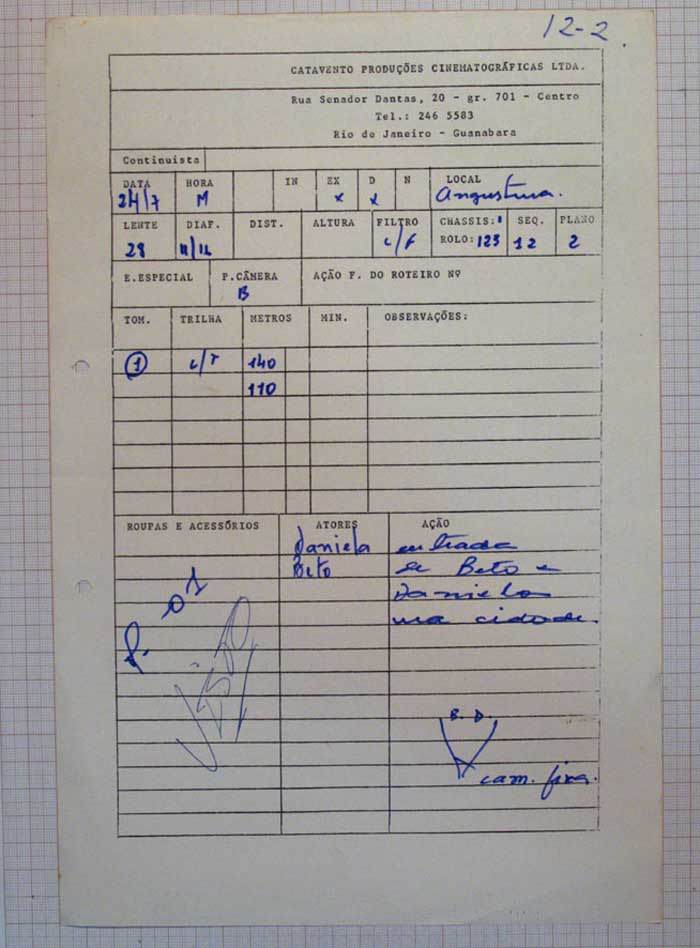 12-2
CATAVENTO PRODUÇÕES CINEMATOGRÁFICAS LTDA.
Rua Senador Dantas, 20 - gr. 701 - Centro
Tel.: 246 5583
Rio de Janeiro - Guanabara
Continuista
DATA HORA IN EX D N LOCAL
24/7 M x x Angustura.
LENTE DIAF. DIST. ALTURA FILTRO CHASSIS: SEQ. PLANO
28 11/16 c/F ROLO: 123 12 2
E.ESPECIAL P.CÂMERA AÇÃO F. DO ROTEIRO Nº
B
TOM. TRILHA METROS MIN. OBSERVAÇÕES:
1 140
110
ROUPAS E ACESSÓRIOS ATORES AÇÃO
Daniela entrada
Beto de Beto e
Daniela
na cidade.
B. D.
cam. fixa.